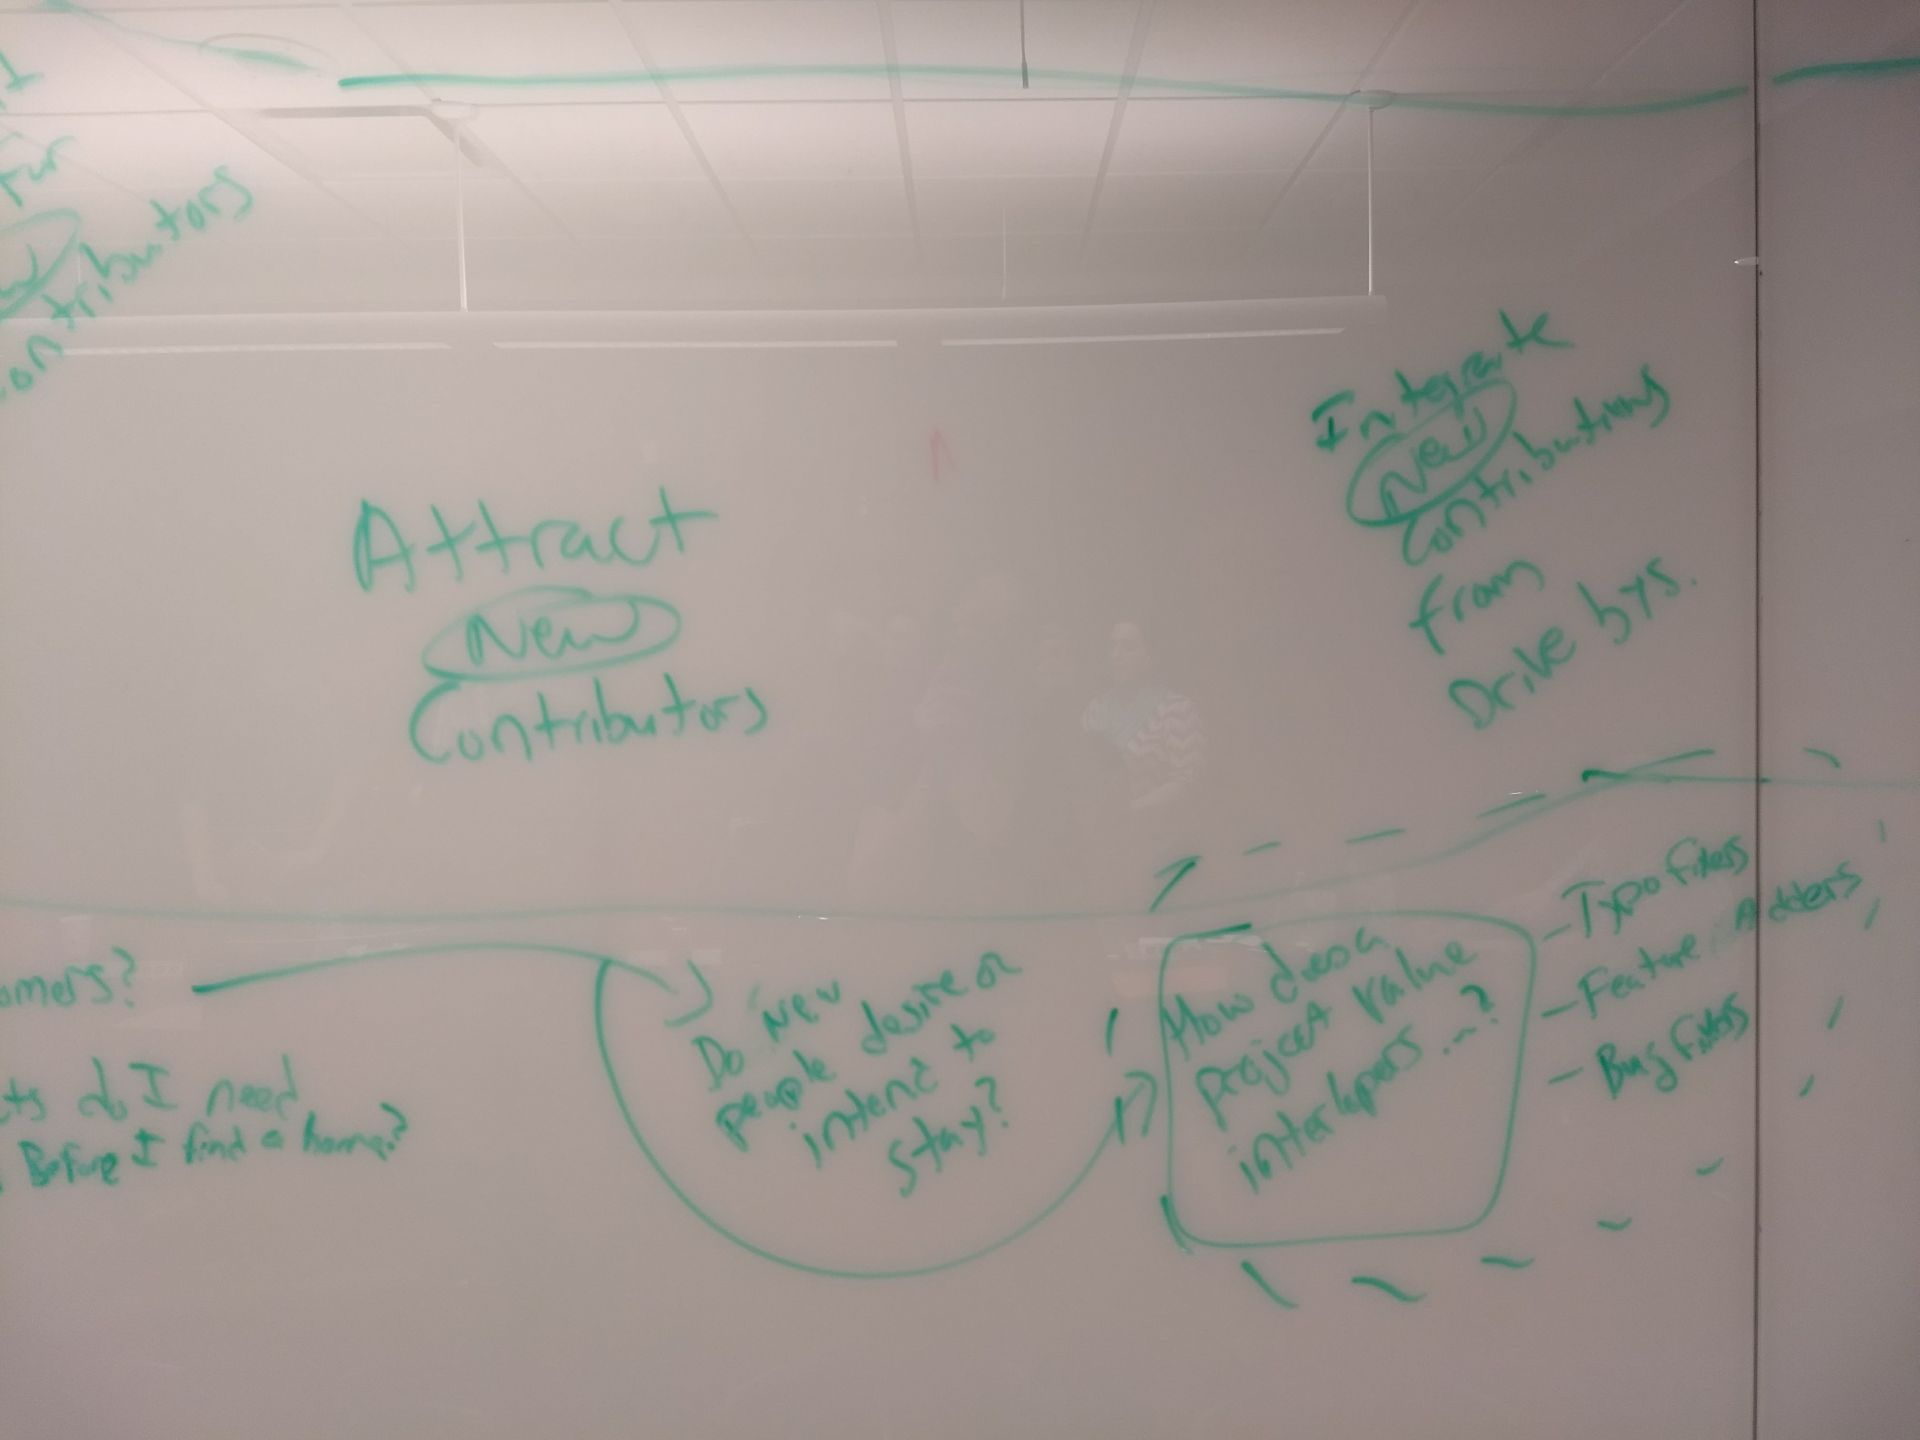 for
contributors
Attract
New
Contributors
Integrate
New
Contributions
from
Drive bys.
omers?
cts do I need
Before I find a home?
Do New
people desire or
intend to
stay?
How does a
project value
interlopers...?
- Typo fixers
- Feature Adders
- Bug fixers